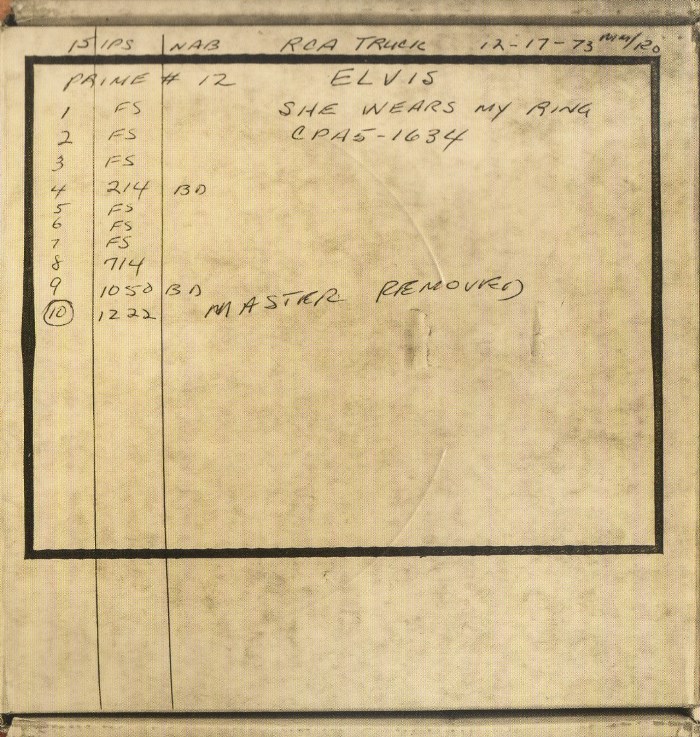 15 IPS NAB RCA TRUCK 12-17-73 MM/RO
PRIME # 12 ELVIS
1 FS SHE WEARS MY RING
2 FS CPA5-1634
3 FS
4 214 BD
5 FS
6 FS
7 FS
8 714
9 1050 BD
10 1222 MASTER REMOVED